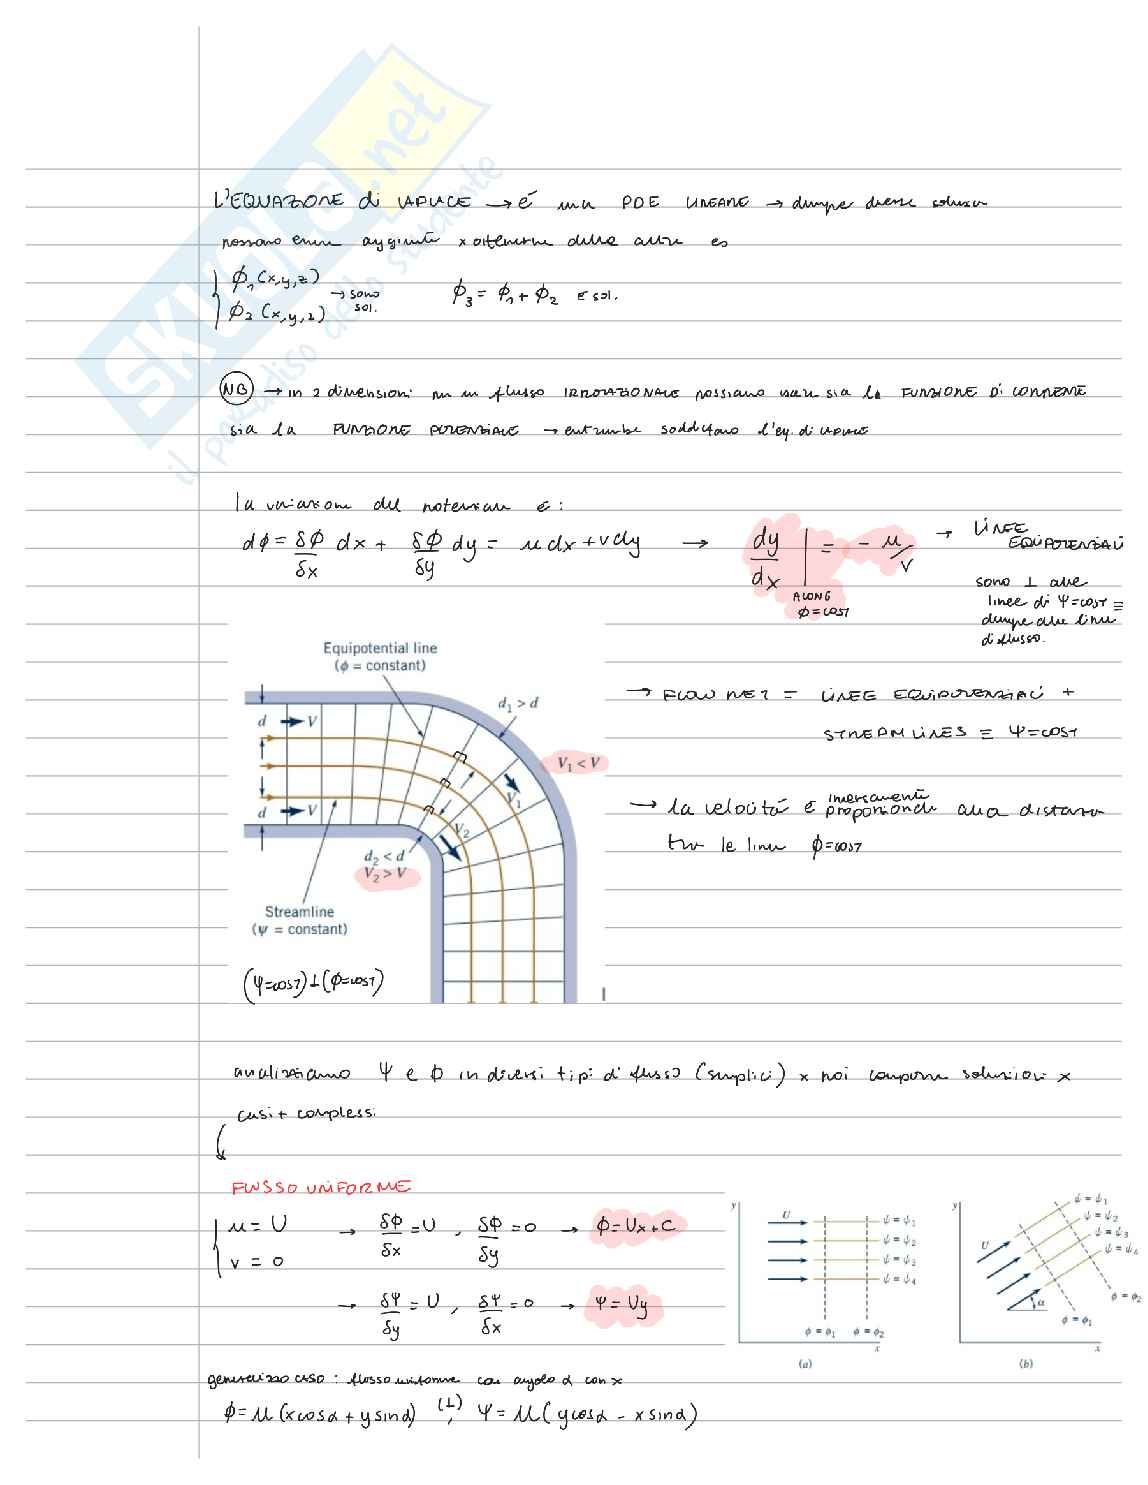 SKUOLA.net
il paradiso dello studente
L'EQUAZIONE di LAPLACE → é una PDE LINEARE → dunque diverse soluzioni
possono essere aggiunte x ottenerne delle altre es
ϕ₁(x,y,z)
ϕ₂(x,y,z)
→ sono sol.
ϕ₃ = ϕ₁ + ϕ₂ è sol.
NB → in 2 dimensioni per un flusso IRROTAZIONALE possiamo usare sia la FUNZIONE DI CORRENTE
sia la FUNZIONE POTENZIALE → entrambe soddisfano l'eq. di LAPLACE
la variazione del potenziale è:
dϕ = δϕ/δx dx + δϕ/δy dy = u dx + v dy → dy/dx | ALONG ϕ=COST = - u/v → LINEE EQUIPOTENZIALI
sono ⊥ alle
linee di Ψ=cost ≡
dunque alle linee
di flusso.
Equipotential line
(ϕ = constant)
d₁ > d
d
V
V₁ < V
V₁
d
V
V₂
d₂ < d
V₂ > V
Streamline
(ψ = constant)
(Ψ=cost)⊥(ϕ=cost)
→ FLOW NET = LINEE EQUIPOTENZIALI +
STREAMLINES ≡ Ψ=COST
→ la velocità è inversamente proporzionale alla distanza
tra le linee ϕ=cost
analizziamo Ψ e ϕ in diversi tipi di flusso (semplici) x poi comporre soluzioni x
casi + complessi
FLUSSO UNIFORME
u = U → δϕ/δx = U , δϕ/δy = 0 → ϕ = Ux + C
v = 0
→ δΨ/δy = U , δΨ/δx = 0 → Ψ = Uy
y
U
ψ = ψ₁
ψ = ψ₂
ψ = ψ₃
ψ = ψ₄
ϕ = ϕ₁ ϕ = ϕ₂
x
(a)
y
U
ψ = ψ₁
ψ = ψ₂
ψ = ψ₃
ψ = ψ₄
α
ϕ = ϕ₂
ϕ = ϕ₁
x
(b)
generalizzo caso : flusso uniforme con angolo α con x
ϕ = U (x cosα + y sinα) (⊥) , Ψ = U (y cosα - x sinα)